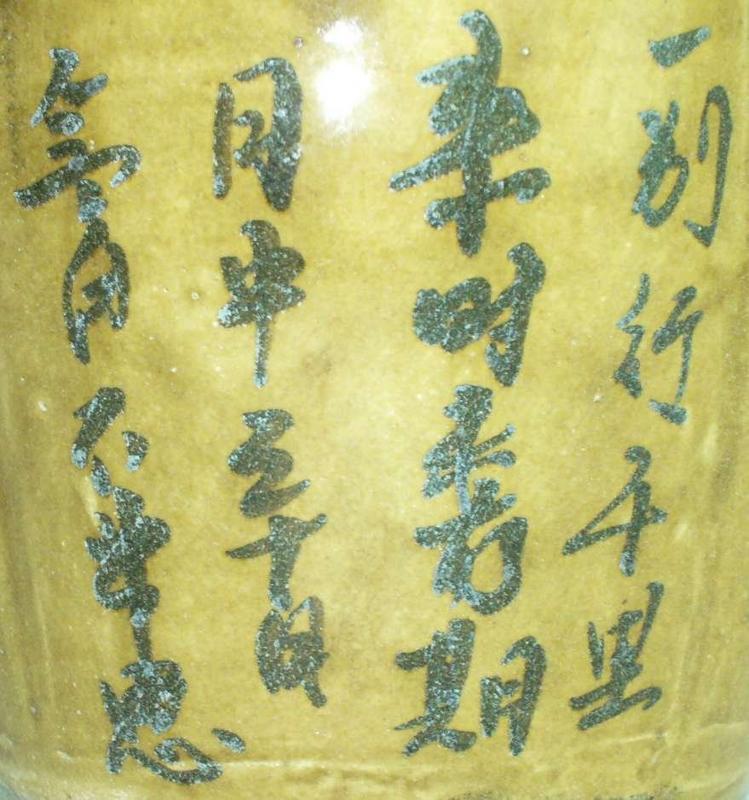 一別行千里
来時未有期
月中三十日
無夜不相思